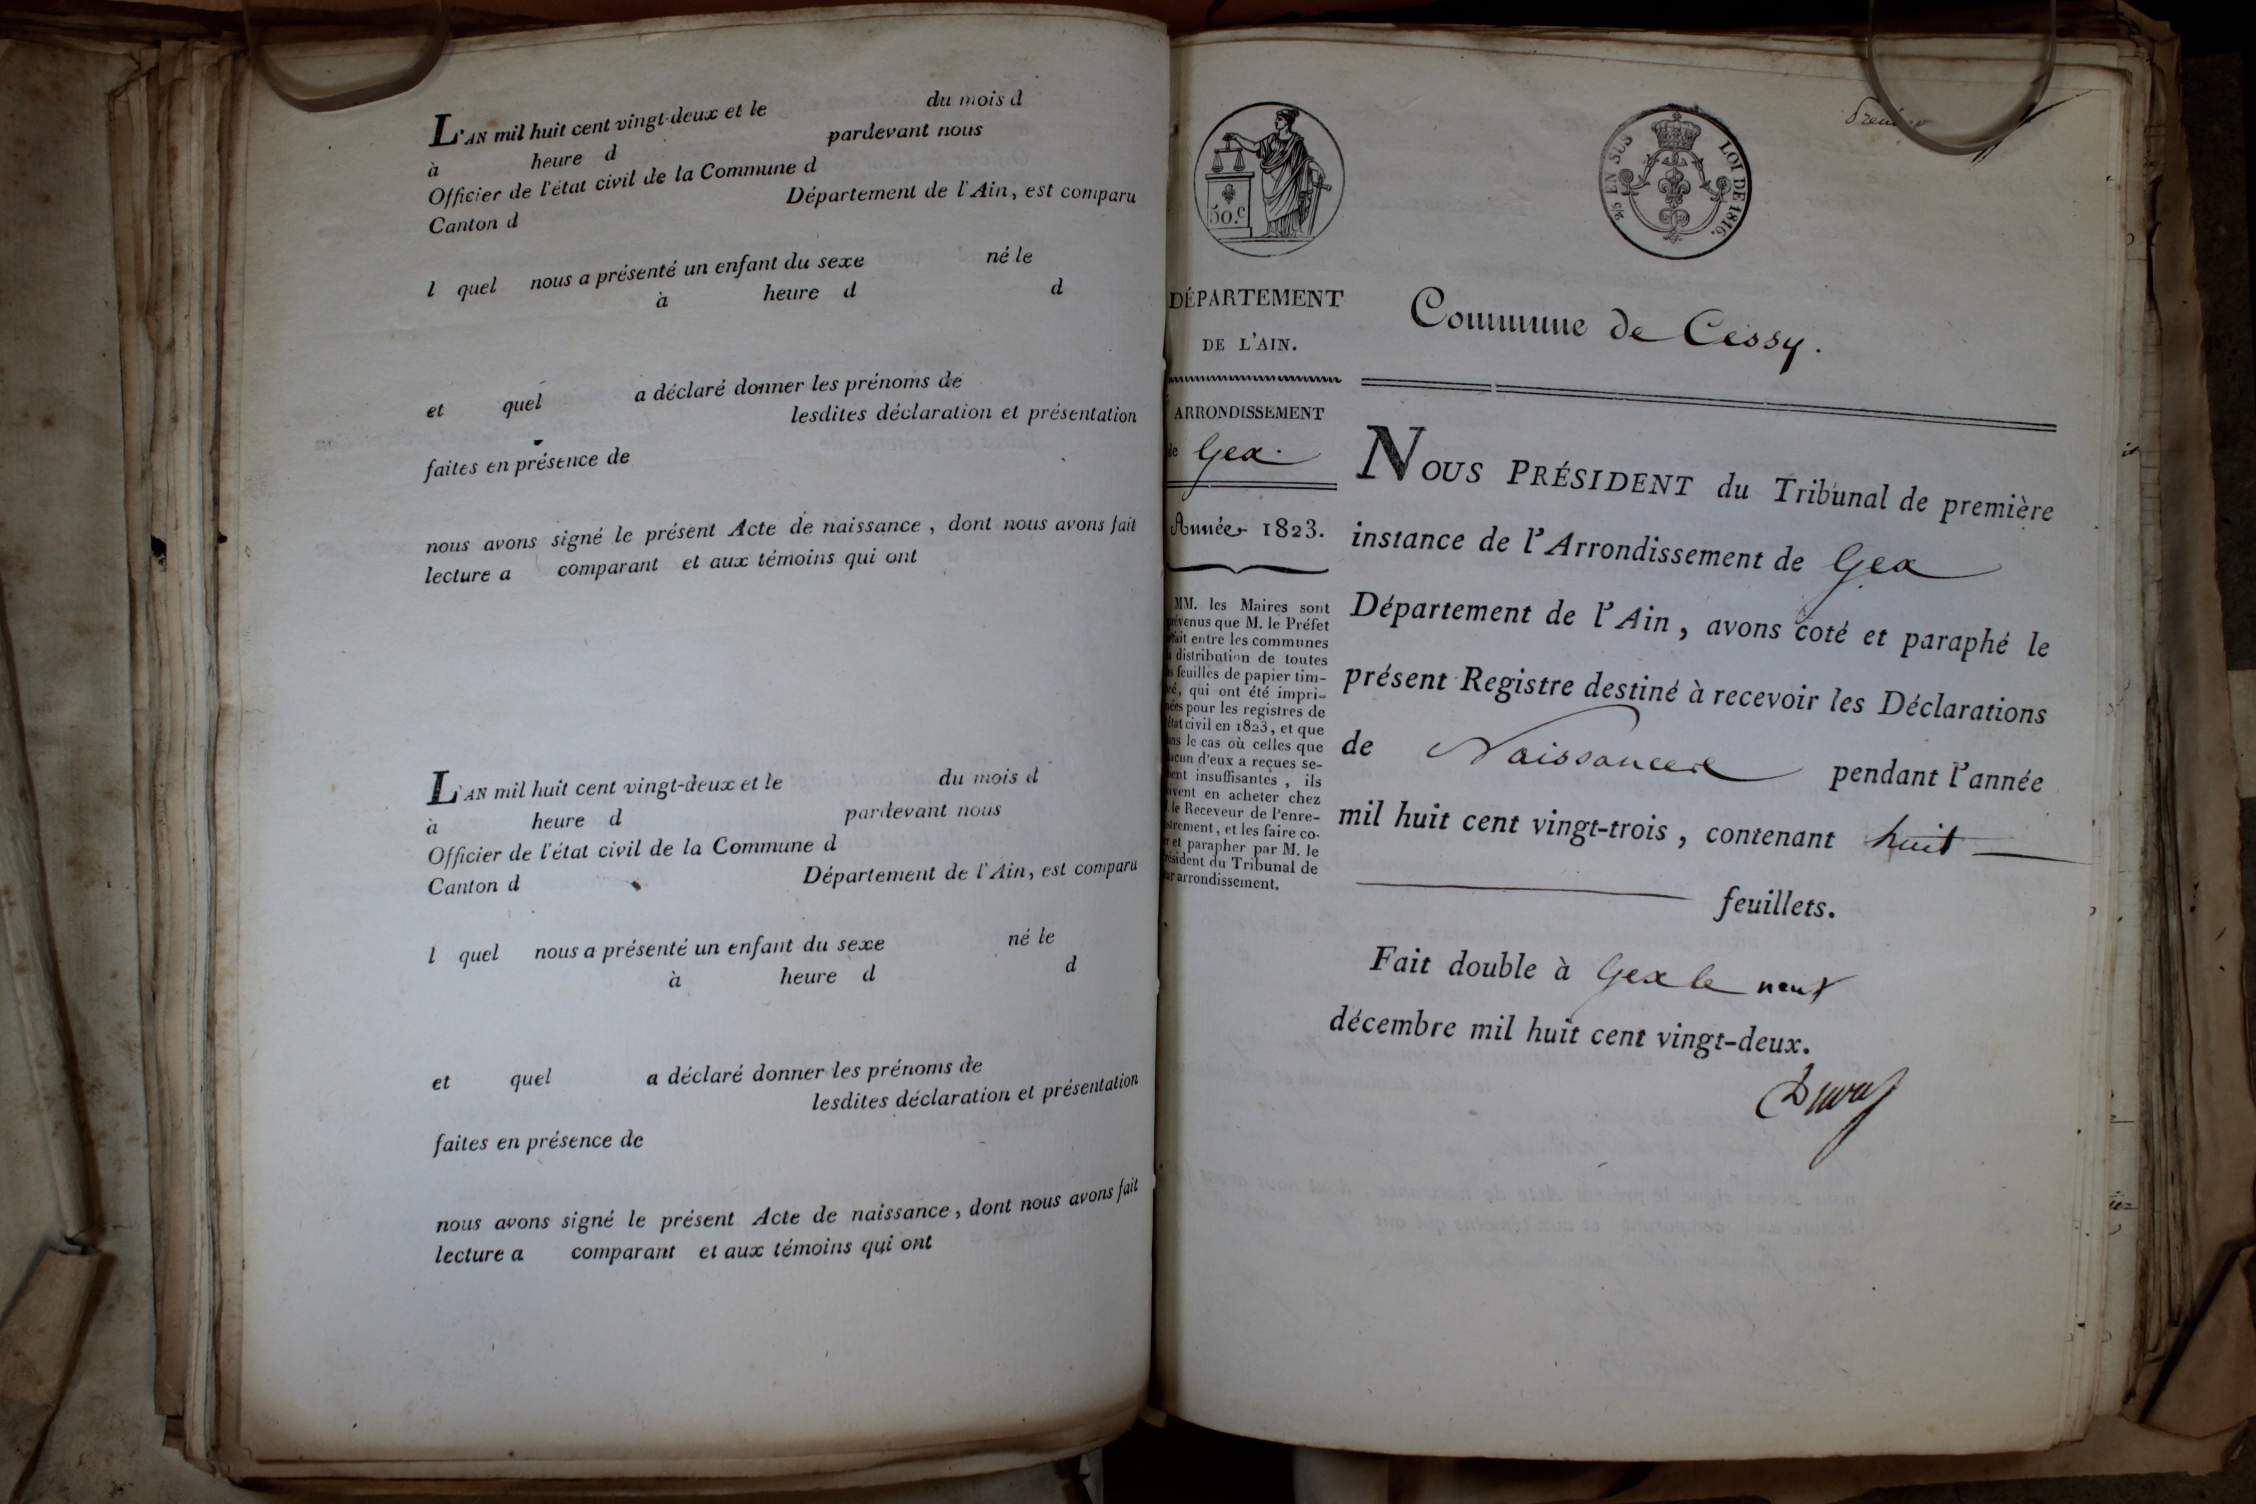 L'AN mil huit cent vingt-deux et le du mois d
à heure d pardevant nous
Officier de l'état civil de la Commune d
Canton d Département de l'Ain, est comparu
l quel nous a présenté un enfant du sexe né le
à heure d d
et quel a déclaré donner les prénoms de
lesdites déclaration et présentation
faites en présence de
nous avons signé le présent Acte de naissance, dont nous avons fait
lecture a comparant et aux témoins qui ont
L'AN mil huit cent vingt-deux et le du mois d
à heure d pardevant nous
Officier de l'état civil de la Commune d
Canton d Département de l'Ain, est comparu
l quel nous a présenté un enfant du sexe né le
à heure d d
et quel a déclaré donner les prénoms de
lesdites déclaration et présentation
faites en présence de
nous avons signé le présent Acte de naissance, dont nous avons fait
lecture a comparant et aux témoins qui ont
50.c
EN SUS LOI DE 1816.
DÉPARTEMENT
DE L'AIN.
ARRONDISSEMENT
de Gex.
Année 1823.
MM. les Maires sont
que M. le Préfet
entre les communes
distribution de toutes
feuilles de papier tim-
qui ont été impri-
pour les registres de
civil en 1823, et que
le cas où celles que
d'eux a reçues se-
insuffisantes, ils
en acheter chez
le Receveur de l'enre-
et les faire co-
et parapher par M. le
du Tribunal de
arrondissement.
Commune de Cessy.
NOUS PRÉSIDENT du Tribunal de première
instance de l'Arrondissement de Gex
Département de l'Ain, avons coté et paraphé le
présent Registre destiné à recevoir les Déclarations
de Naissance pendant l'année
mil huit cent vingt-trois, contenant huit
feuillets.
Fait double à Gex le neuf
décembre mil huit cent vingt-deux.